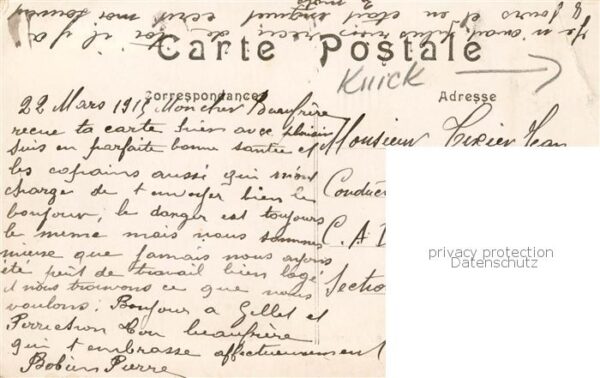 Je n'avais plus rien reçu de toi il y a
8 jours et en était inquiet ecrit moi souvent
Carte Postale
Knick
Correspondance
Adresse
22 Mars 1915 Mon cher Beaufrère
recue ta carte hier avec plaisir
suis en parfaite bonne santée et
les copains aussi qui m'ont
charge de t envoyer bien le
bonjour, le danger est toujours
le meme mais nous sommes
mieux que jamais nous avons
été peut de travail bien logé
et nous trouvons ce que nous
voulons: Bonjour a Gillet et
Perrichon Ton beaufrère
qui t embrasse affectueusement
Pierre
Monsieur Texier Jean
Conduc
C. A
Section
privacy protection
Datenschutz